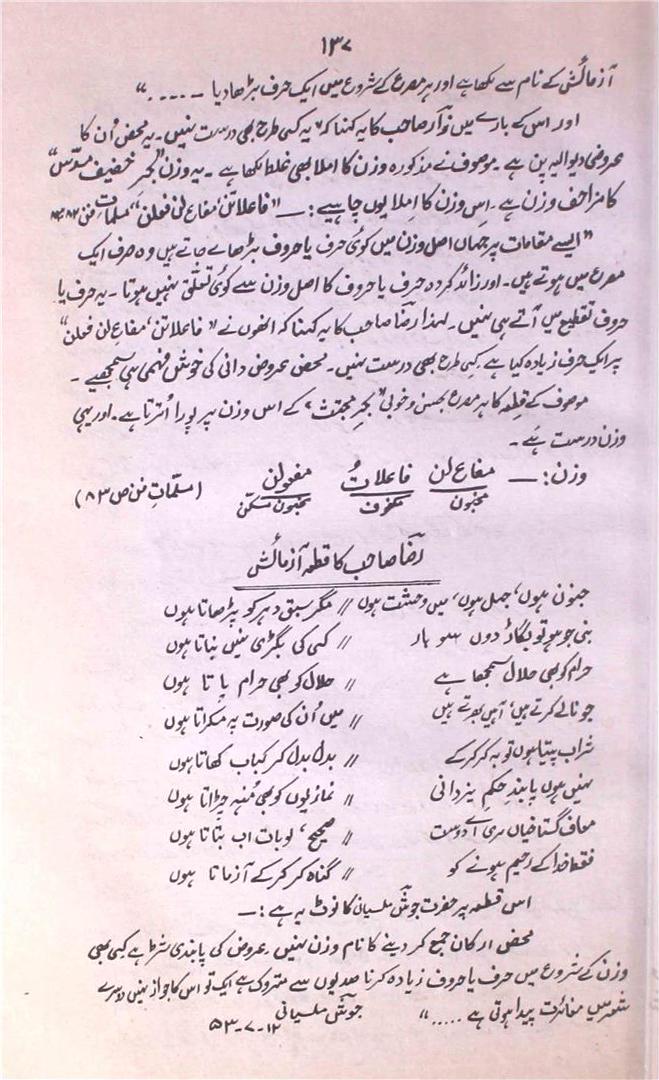 ۱۳۷
آزمائش کے نام سے لکھا ہے اور ہر مصرع کے شروع میں ایک حرف بڑھا دیا - ۔۔۔۔"
اور اس کے بارے میں نوآر صاحب کا یہ کہنا کہ "یہ کسی طرح بھی درست نہیں۔ یہ محض اُن کا
عروضی دیوالیہ پن ہے۔ موصوف نے مذکورہ وزن کا املا بھی غلط لکھا ہے۔ یہ وزن "بحرِ خفیف مسدّس"
کا مزاحف وزن ہے۔ اِس وزن کا اِملا یوں چاہیے :— "فاعلاتن، مفاع لن فعلن" مسلّماتِ فن
"ایسے مقامات پر جہاں اصل وزن میں کوئی حرف یا حروف بڑھائے جاتے ہیں وہ صرف ایک
مصرع میں ہوتے ہیں۔ اور زائد کردہ حرف یا حروف کا اصل وزن سے کوئی تعلّق نہیں ہوتا۔ یہ حرف یا
حروف تقطیع میں آتے ہی نہیں۔ لہٰذا رضا صاحب کا یہ کہنا کہ انھوں نے "فاعلاتن، مفاع لن فعلن"
پر ایک حرف زیادہ کیا ہے کسی طرح بھی درست نہیں۔ محض عروض دانی کی خوش فہمی ہی سمجھیے۔
موصوف کے قطعہ کا ہر مصرع بحسن و خوبی "بحرِ مجتث" کے اس وزن پر پورا اُترتا ہے۔ اور یہی
وزن درست ہے۔
وزن :— مفاع لن فاعلاتُ مفعولن (مسلّماتِ فن ص ۸۳)
مخبون مکفوف مخبون مسکّن
رضا صاحب کا قطعہ آزمائش
جنون ہوں، جہل ہوں، میں وحشت ہوں // مگر سبق دہر کو پڑھاتا ہوں
بنی جو ہو تو بگاڑ دوں سو بار // کسی کی بگڑی نہیں بناتا ہوں
حرام کو بھی حلال سمجھا ہے // حلال کو بھی حرام پاتا ہوں
جو نالے کرتے ہیں، آہیں بھرتے ہیں // میں اُن کی صورت پہ مسکراتا ہوں
شراب پیتا ہوں توبہ کر کر کے // بدل بدل کر کباب کھاتا ہوں
نہیں ہوں پابندِ حکمِ یزدانی // نمازیوں کو بھی مُنہ چِڑاتا ہوں
معاف گستاخیاں مری اے دوست // صحیح، لو بات اب بتاتا ہوں
فقط خدا کے رحیم ہونے کو // گناہ کر کر کے آزماتا ہوں
اس قطعہ پر حضرت جوش ملسیانی کا نوٹ یہ ہے :—
محض ارکان جمع کر دینے کا نام وزن نہیں۔ عروض کی پابندی شرط ہے کسی بھی
وزن کے شروع میں حرف یا حروف زیادہ کرنا صدیوں سے متروک ہے ایک تو اس کا جواز نہیں دوسرے
شعر میں مغائرت پیدا ہوتی ہے ....." جوش ملسیانی
۱۲-۷-۵۳